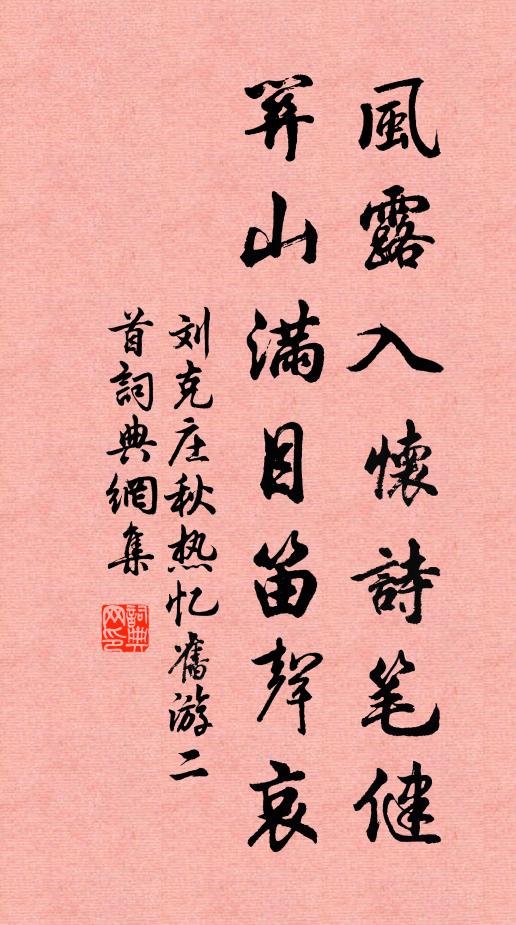 風露入懷詩笔健
关山滿目笛聲哀
刘克庄秋热忆舊游二
首詞典網集
詞典网印